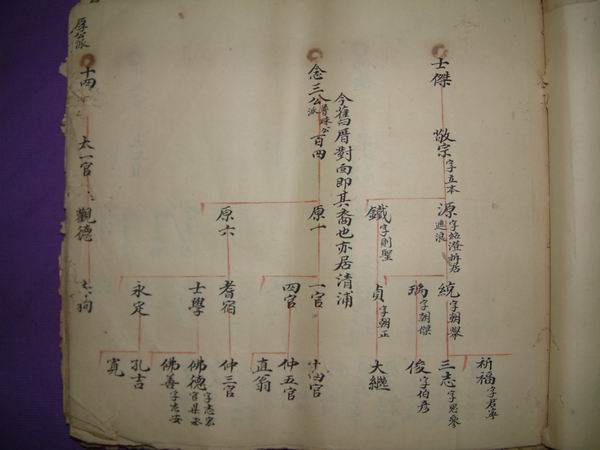 士傑
敬宗字立本
源字 澄析居
鐵字則聖
統字朝舉
瑀字朝傑
貞字朝正
祈福字君寧
三志字君參
俊字伯彥
大繼
今舊厝對向即其裔也亦居清浦
念三公普珠公派
百四
原一
原六
一官
四官
耆宿
士學
永定
十四官
仲五官
直翁
仲三官
佛德字志宏
佛善字志安
孔吉
寬
厚公派
十四
太一官
觀德